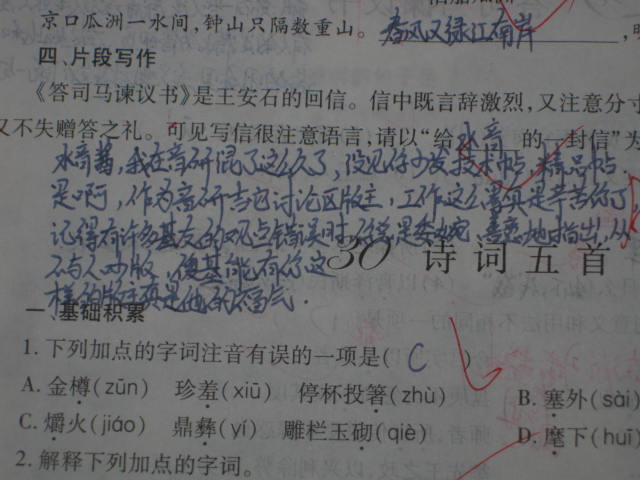 京口瓜洲一水间，钟山只隔数重山。春风又绿江南岸，明
四、片段写作
《答司马谏议书》是王安石的回信。信中既言辞激烈，又注意分寸
又不失赠答之礼。可见写信很注意语言，请以“给水音的一封信”为
水音酱，我在音研混了这么久了，没见你少发技术帖，精品帖
是啊，作为音研吉它讨论区版主，工作这么真是辛苦你了
记得有许多基友的观点错误时，你总是委婉，善意地指出，从
不与人吵版，使基能有你这
30 诗词五首
样的版主真是他的福气.
一、基础积累
1.下列加点的字词注音有误的一项是(C)
A.金樽(zūn) 珍羞(xiū) 停杯投箸(zhù) B.塞外(sài)
C.爝火(jiáo) 鼎彝(yí) 雕栏玉砌(qiè) D.麾下(huī)
2.解释下列加点的字词。